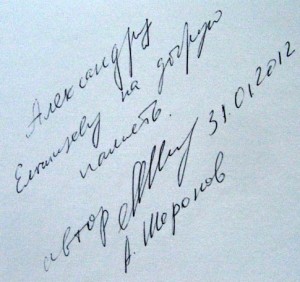 Александру
Елтышеву на добрую
память.
автор 31.01.2012
А. Шоронов